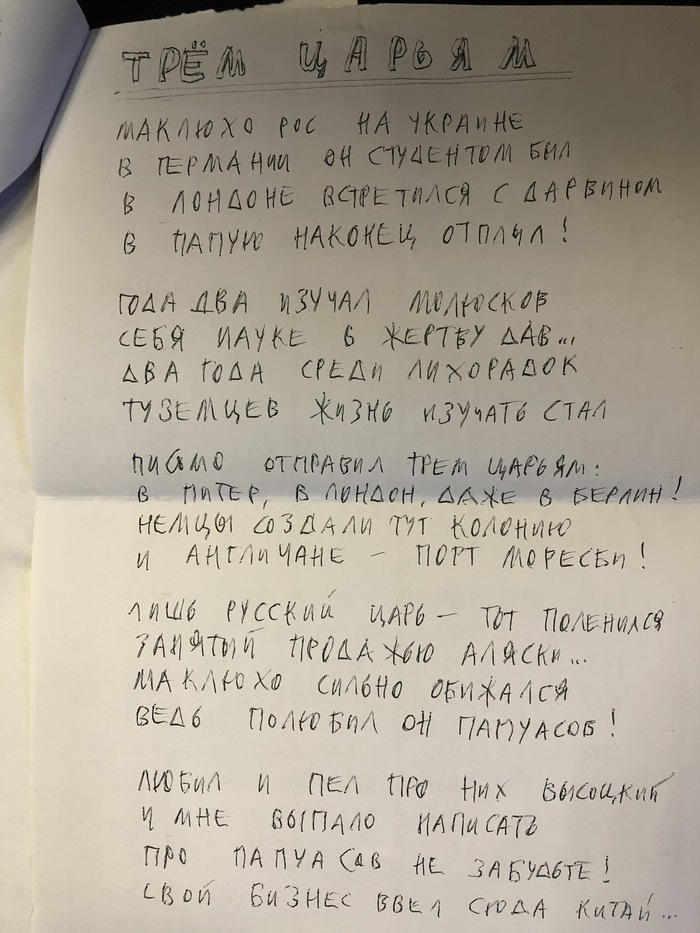 ТРЁМ ЦАРЬЯМ
МАКЛЮХО РОС НА УКРАИНЕ
В ГЕРМАНИИ ОН СТУДЕНТОМ БЫЛ
В ЛОНДОНЕ ВСТРЕТИЛСЯ С ДАРВИНОМ
В ПАПУЮ НАКОНЕЦ ОТПЛЫЛ!
ГОДА ДВА ИЗУЧАЛ МОЛЮСКОВ
СЕБЯ НАУКЕ В ЖЕРТВУ ДАВ...
ДВА ГОДА СРЕДИ ЛИХОРАДОК
ТУЗЕМЦЕВ ЖИЗНЬ ИЗУЧАТЬ СТАЛ
ПИСЬМО ОТПРАВИЛ ТРЕМ ЦАРЬЯМ:
В ПИТЕР, В ЛОНДОН, ДАЖЕ В БЕРЛИН!
НЕМЦЫ СОЗДАЛИ ТУТ КОЛОНИЮ
И АНГЛИЧАНЕ – ПОРТ МОРЕСБИ!
ЛИШЬ РУССКИЙ ЦАРЬ – ТОТ ПОЛЕНИЛСЯ
ЗАНЯТЫЙ ПРОДАЖЬЮ АЛЯСКИ...
МАКЛЮХО СИЛЬНО ОБИЖАЛСЯ
ВЕДЬ ПОЛЮБИЛ ОН ПАПУАСОВ!
ЛЮБИЛ И ПЕЛ ПРО НИХ ВЫСОЦКИЙ
И МНЕ ВЫПАЛО НАПИСАТЬ
ПРО ПАПУАСОВ НЕ ЗАБУДЬТЕ!
СВОЙ БИЗНЕС ВВЕЛ СЮДА КИТАЙ...